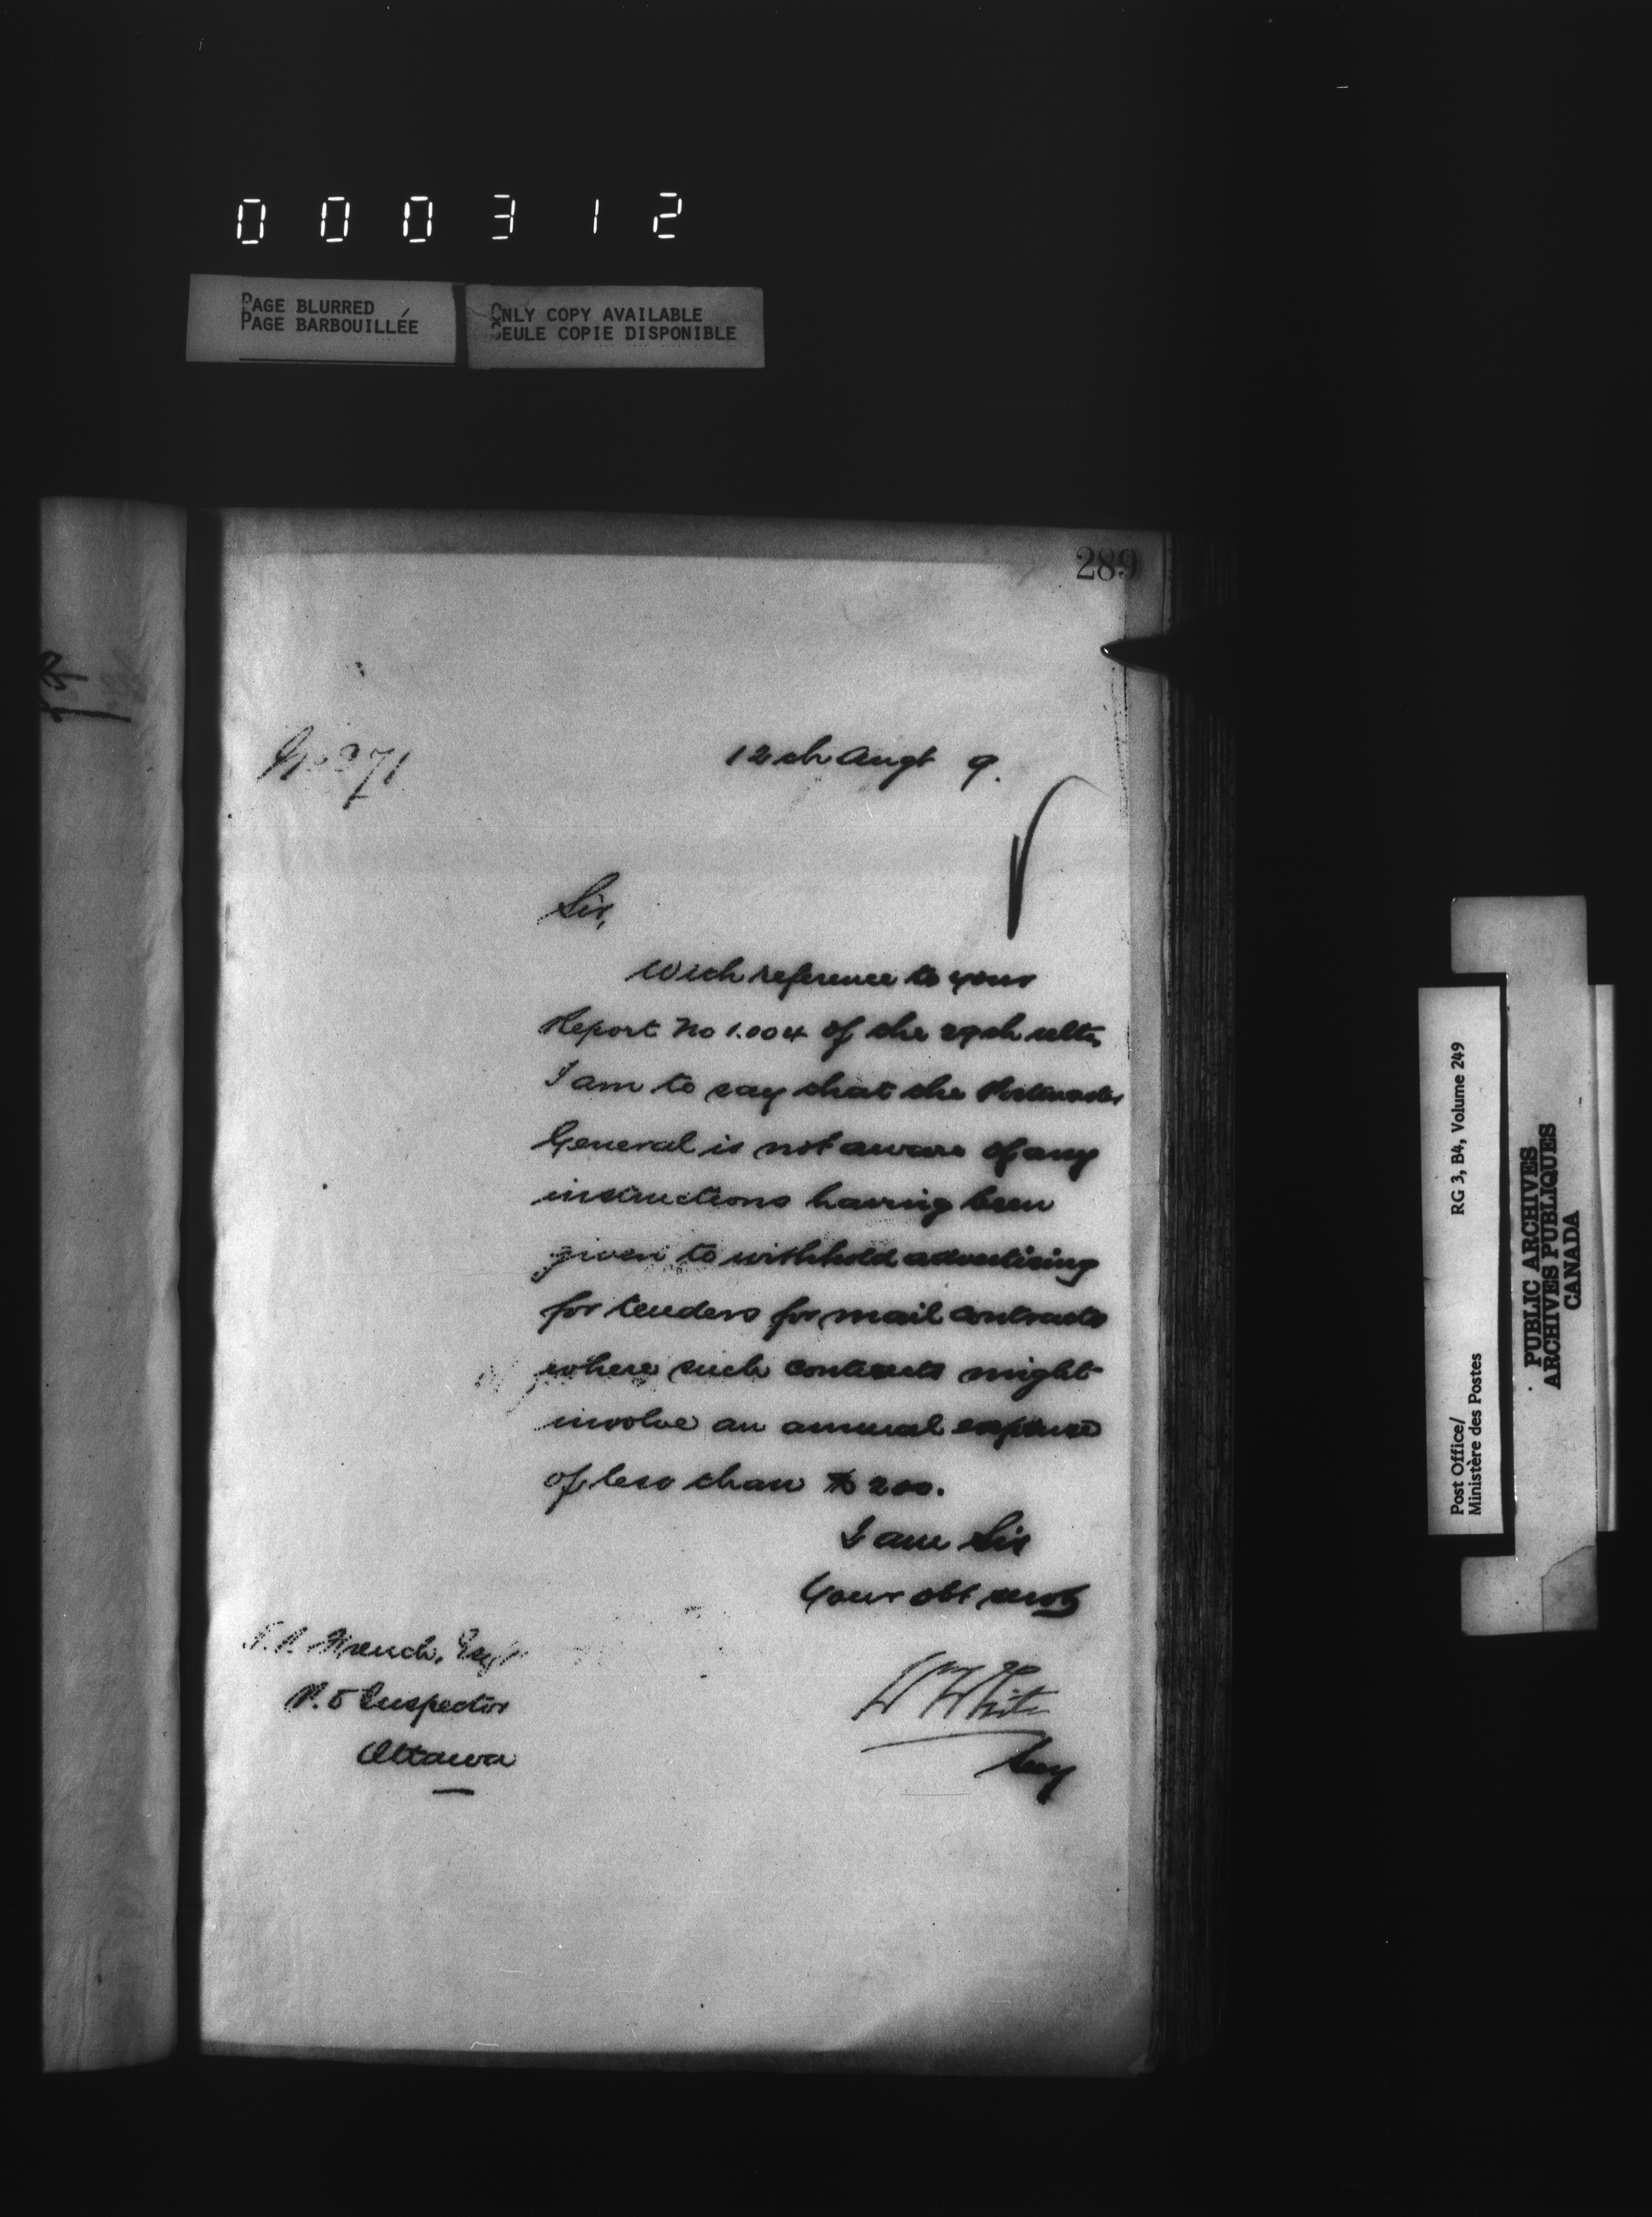 000312
PAGE BLURRED
PAGE BARBOUILLÉE
ONLY COPY AVAILABLE
SEULE COPIE DISPONIBLE
289
No 371
12th Augt 9.
Sir,
With reference to your
Report No 1.004 of the 29th ulto,
I am to say that the Postmaster
General is not aware of any
instructions having been
given to withhold advertising
for tenders for mail contracts
where such contracts might
involve an annual expense
of less than $200.
I am Sir
Your obt servt
W White
Secy
T.P. French, Esqr
P.O Inspector
Ottawa
Post Office/ RG 3, B4, Volume 249
Ministère des Postes
PUBLIC ARCHIVES
ARCHIVES PUBLIQUES
CANADA